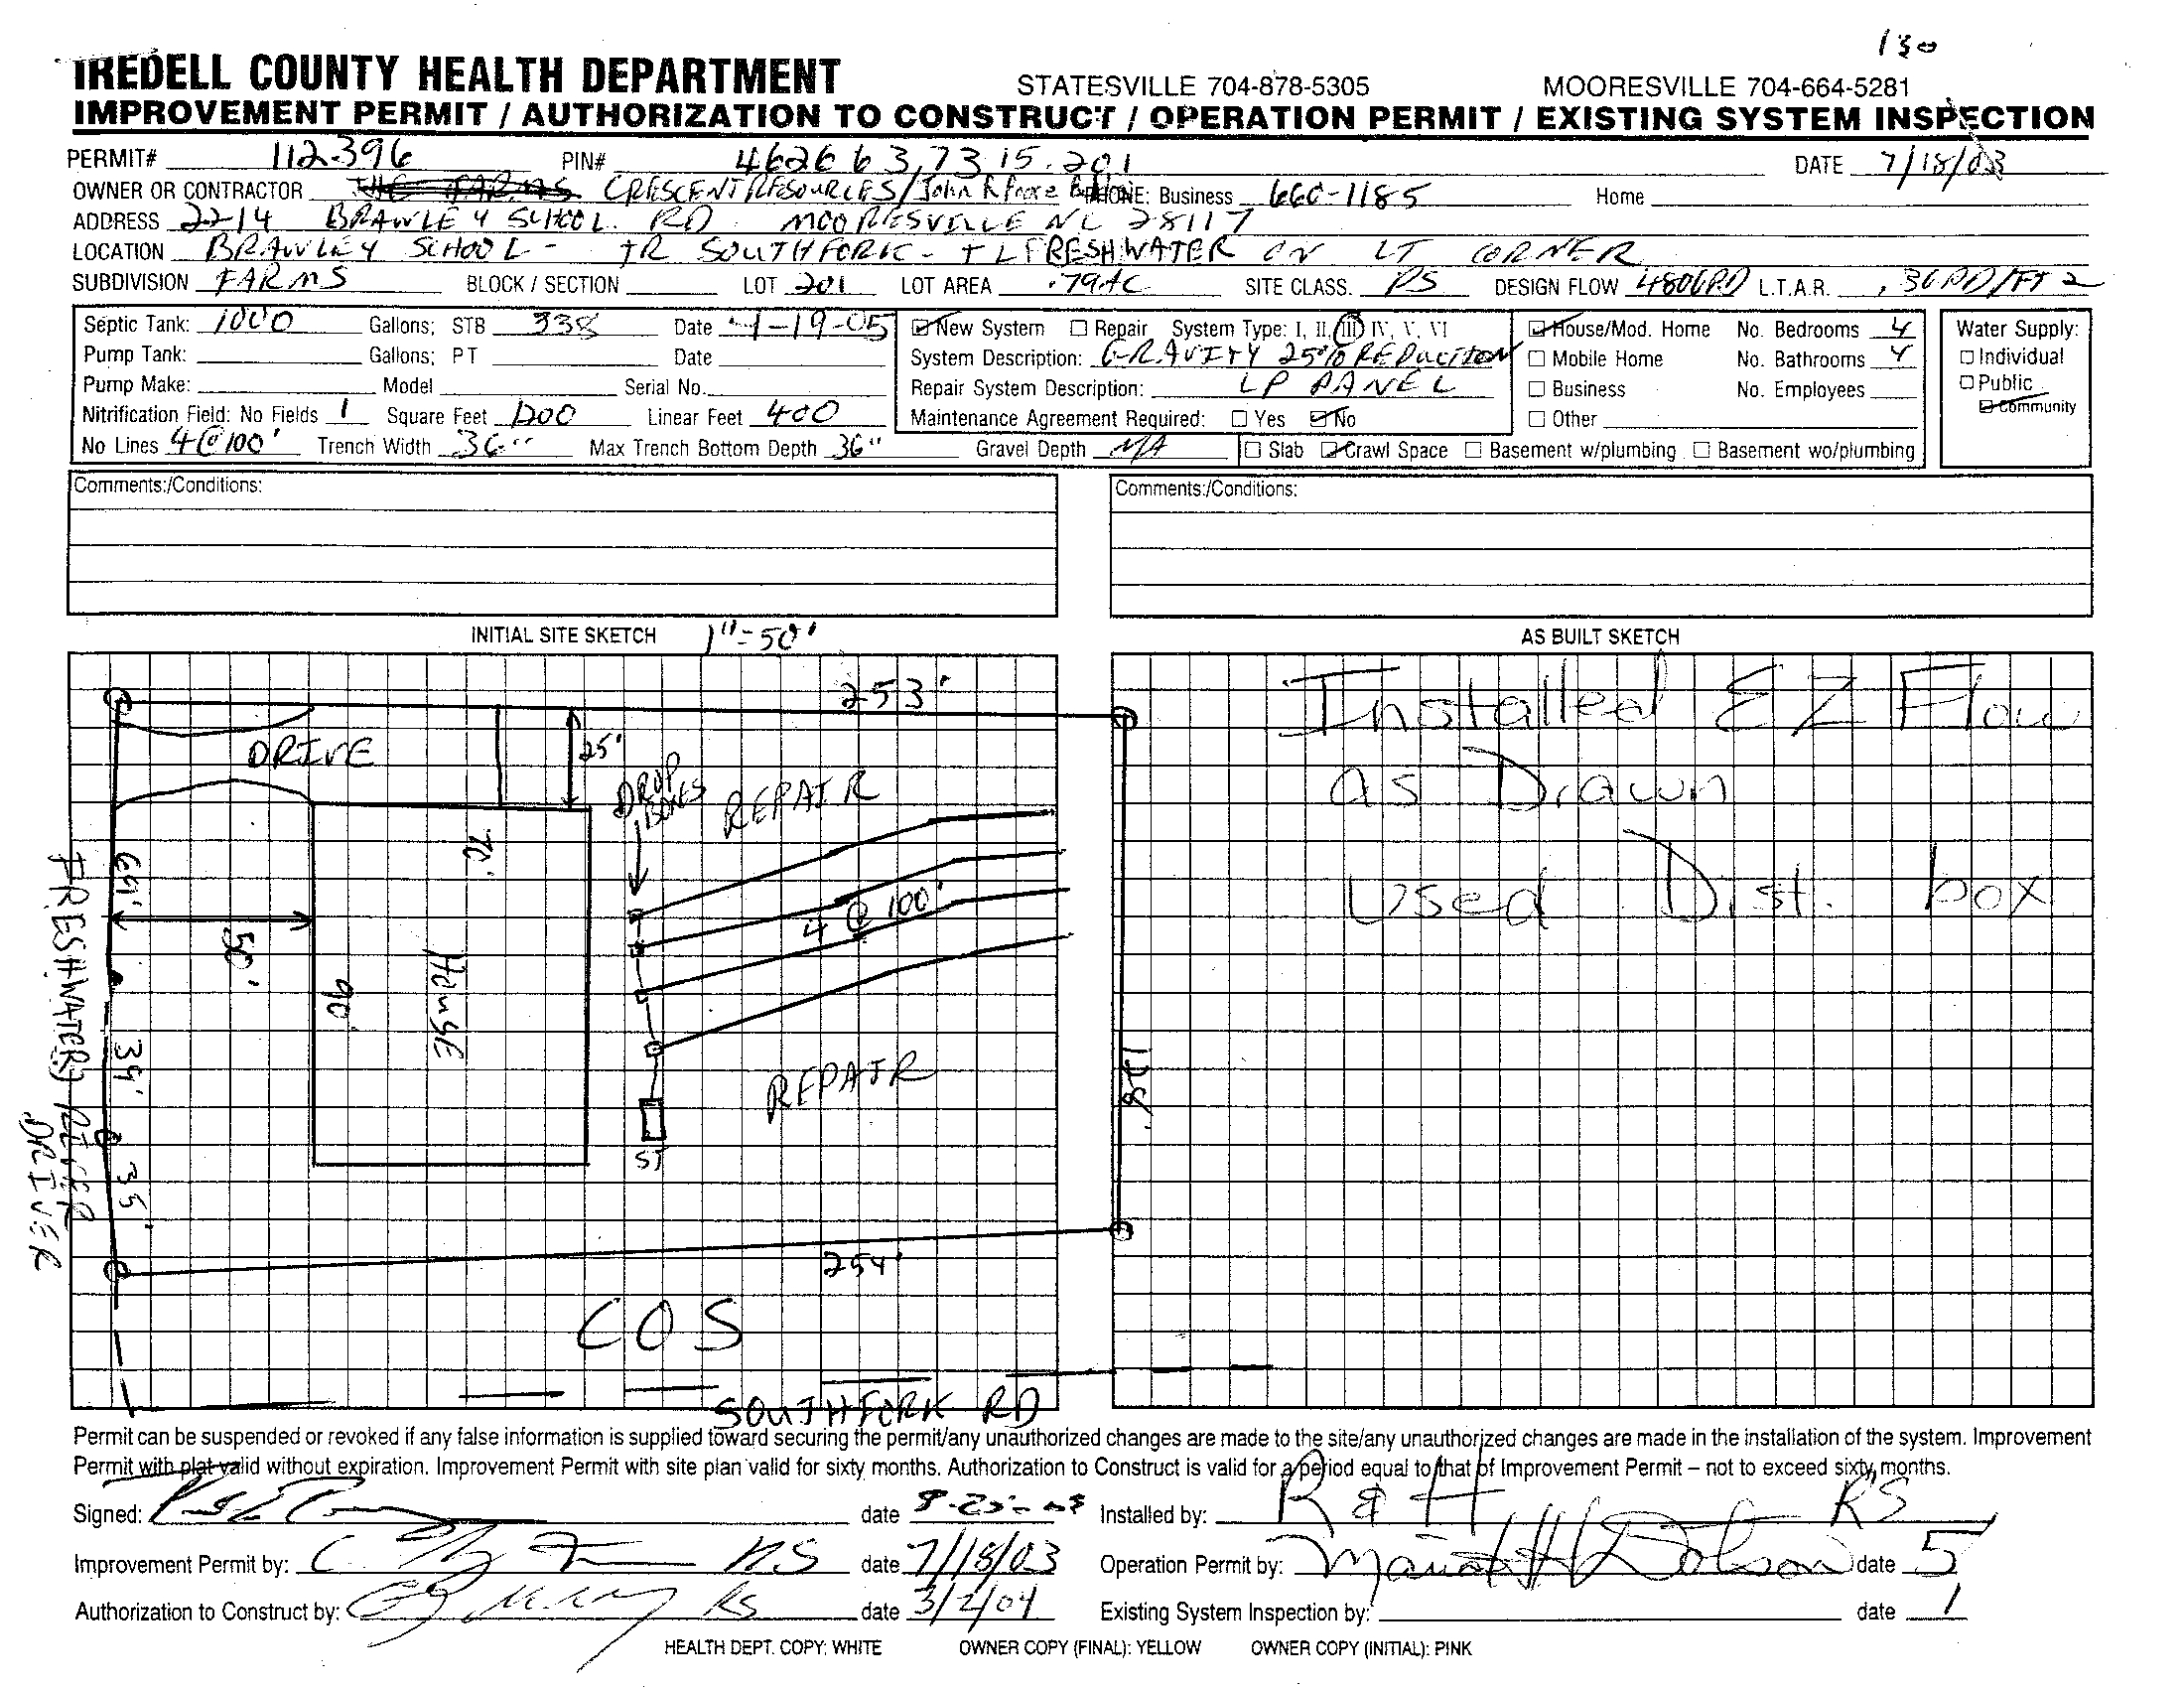 130
IREDELL COUNTY HEALTH DEPARTMENT STATESVILLE 704-878-5305 MOORESVILLE 704-664-5281
IMPROVEMENT PERMIT / AUTHORIZATION TO CONSTRUCT / OPERATION PERMIT / EXISTING SYSTEM INSPECTION
PERMIT# 112396 PIN# 4626 63 7315.201 DATE 7/18/03
OWNER OR CONTRACTOR CRESCENT RESOURCES/John R PHONE: Business 660-1185 Home
ADDRESS 2214 BRAWLEY SCHOOL RD. MOORESVILLE NC 28117
LOCATION BRAWLEY SCHOOL - TR SOUTHFORK - TL FRESHWATER ON LT CORNER
SUBDIVISION FARMS BLOCK / SECTION LOT 201 LOT AREA .79AC SITE CLASS. PS DESIGN FLOW 480GPD L.T.A.R. .3GPD/FT2
Septic Tank: 1000 Gallons; STB 338 Date 4-19-05 New System Repair System Type: I, II, III, IV, V, VI House/Mod. Home No. Bedrooms 4 Water Supply:
Pump Tank: Gallons; PT Date System Description: GRAVITY 25% REDUCTION Mobile Home No. Bathrooms 4 Individual
Pump Make: Model Serial No. Repair System Description: LP PANEL Business No. Employees Public
Nitrification Field: No Fields 1 Square Feet 1200 Linear Feet 400 Maintenance Agreement Required: Yes No Other Community
No Lines 4@100' Trench Width 36" Max Trench Bottom Depth 36" Gravel Depth N/A Slab Crawl Space Basement w/plumbing Basement wo/plumbing
Comments:/Conditions: Comments:/Conditions:
INITIAL SITE SKETCH 1"=50' AS BUILT SKETCH
253'
DRIVE
25'
DROP
BOXES
REPAIR
70'
69'
50'
90'
House
4 @ 100'
FRESHWATER
39'
REPAIR
128'
DRIVE
35'
ST
254'
COS
SOUTHFORK RD
Installed EZ Flow
as Drawn
Used Dist. box
Permit can be suspended or revoked if any false information is supplied toward securing the permit/any unauthorized changes are made to the site/any unauthorized changes are made in the installation of the system. Improvement
Permit with plat valid without expiration. Improvement Permit with site plan valid for sixty months. Authorization to Construct is valid for a period equal to that of Improvement Permit – not to exceed sixty months.
Signed: date 8-25-03 Installed by: R & H RS
Improvement Permit by: RS date 7/18/03 Operation Permit by: H Dotson date 5
Authorization to Construct by: RS date 3/2/04 Existing System Inspection by: date 1
HEALTH DEPT. COPY: WHITE OWNER COPY (FINAL): YELLOW OWNER COPY (INITIAL): PINK